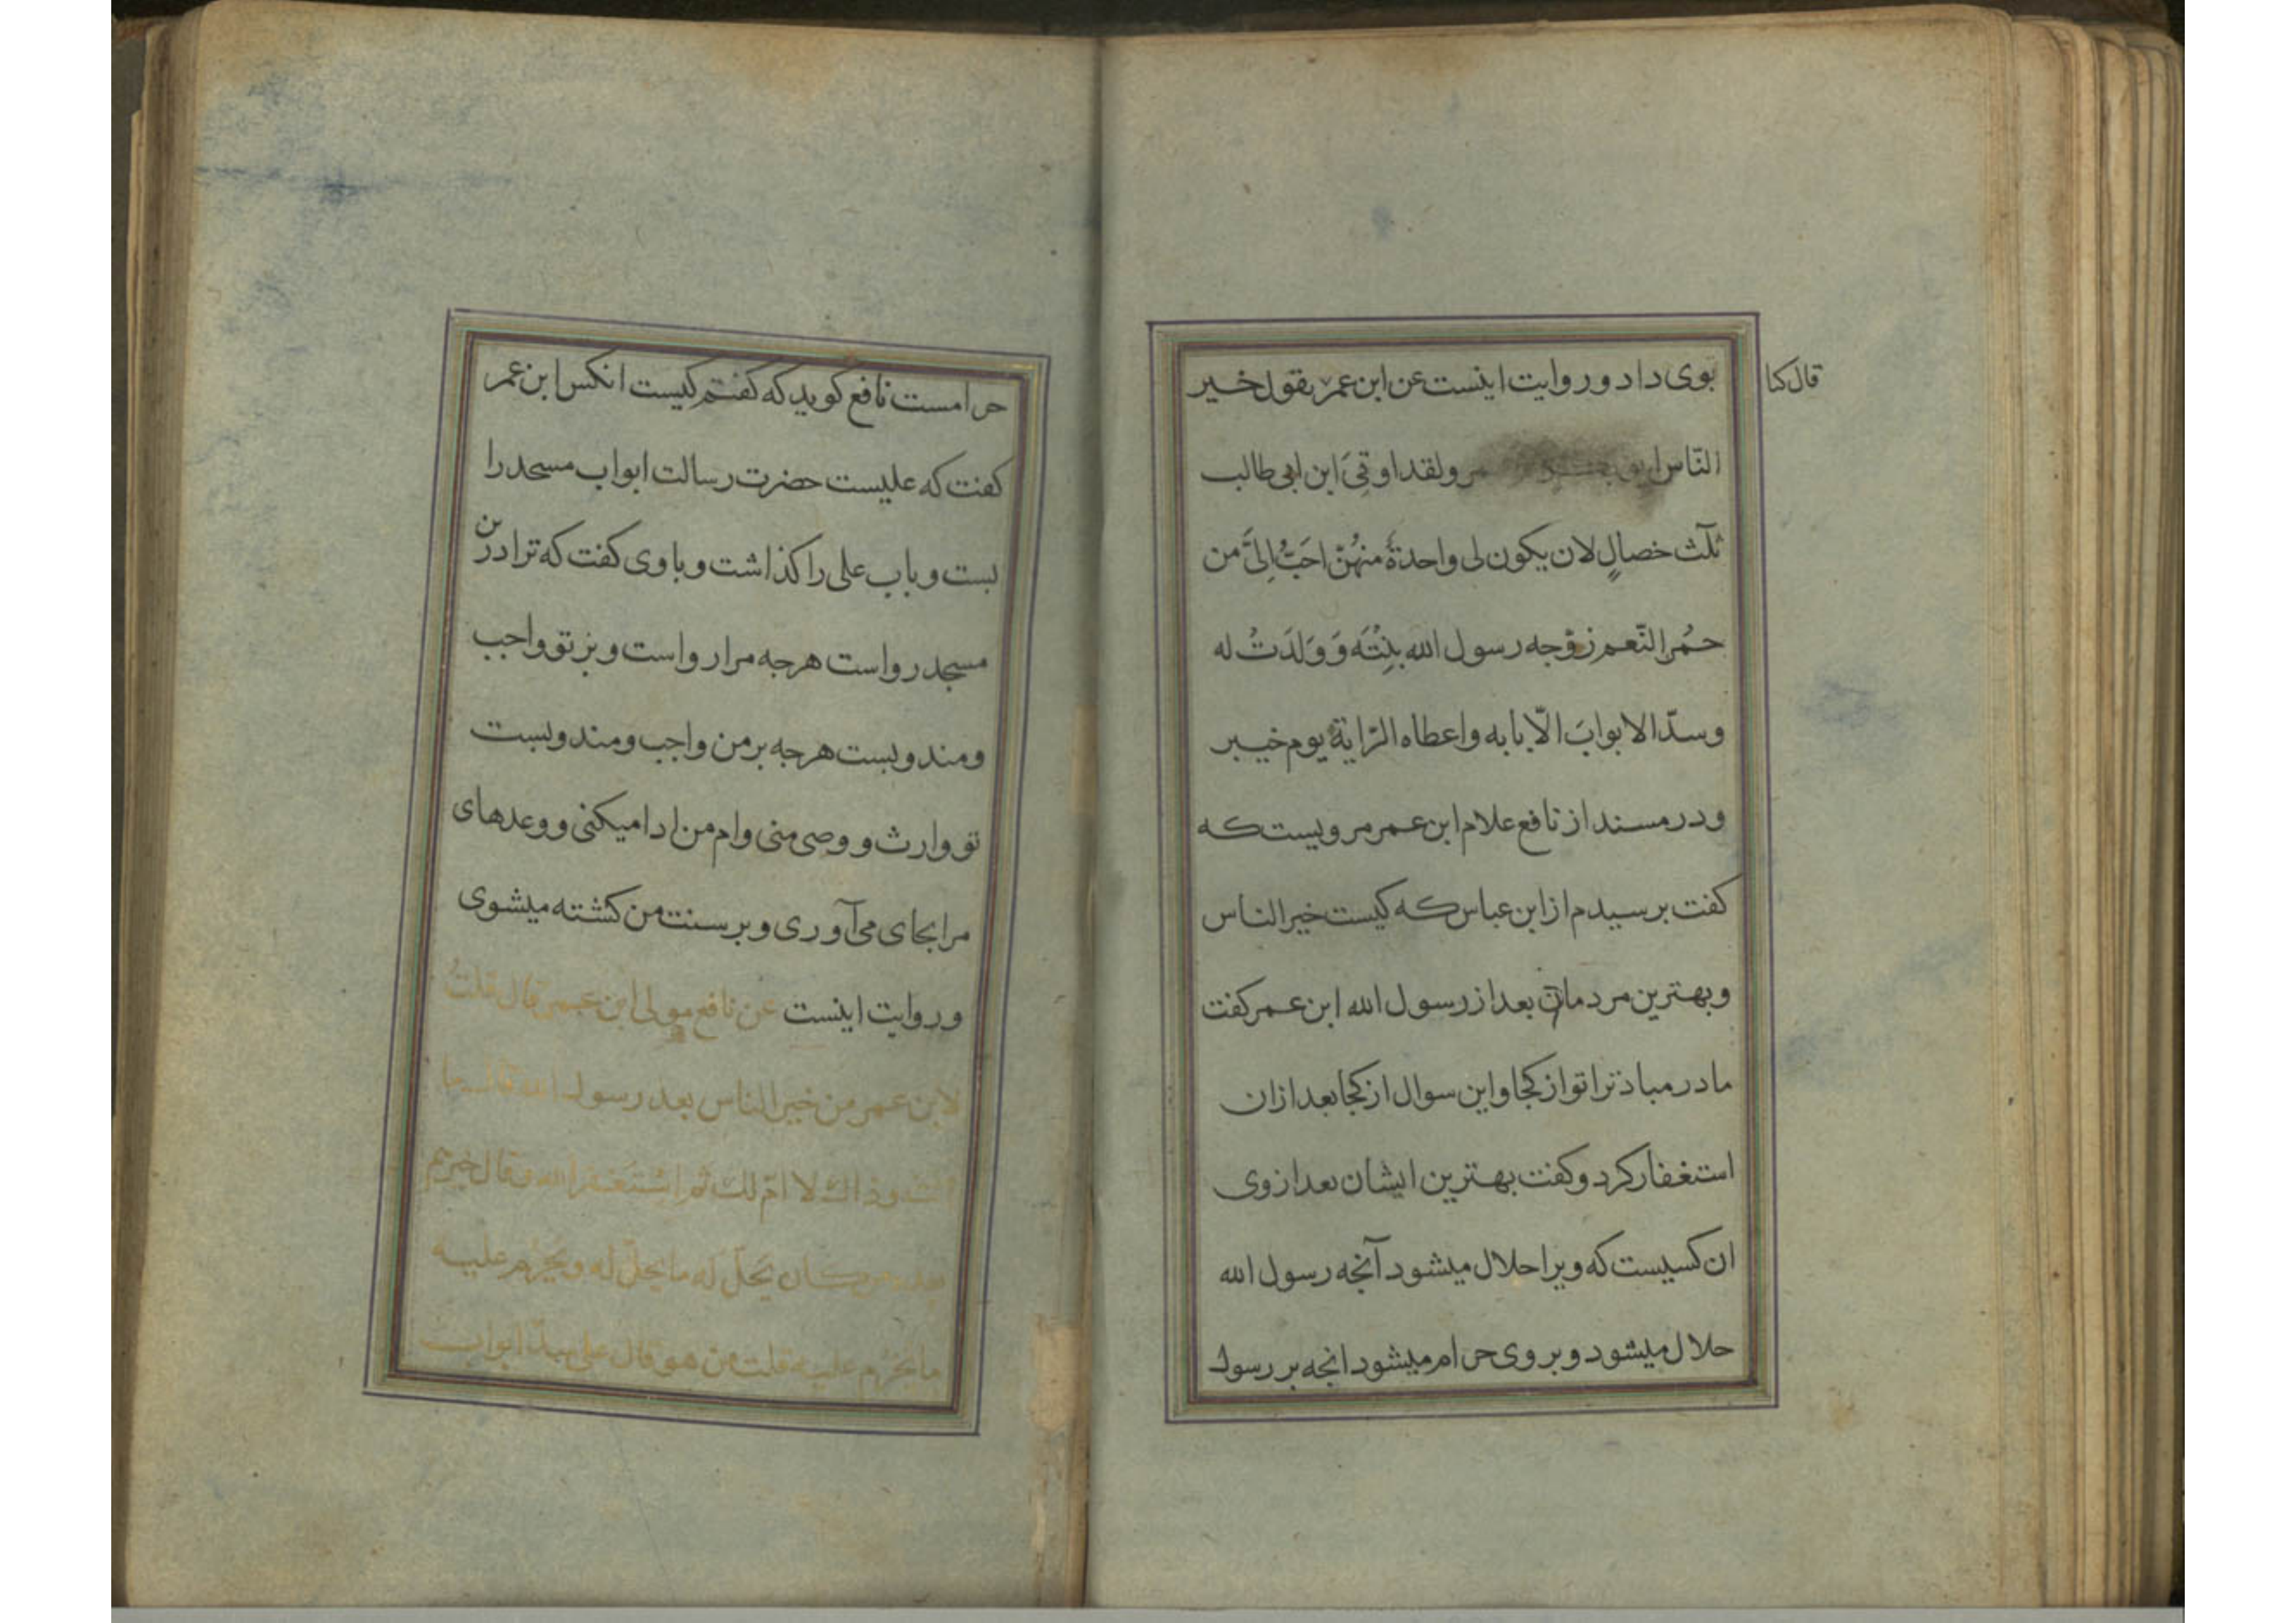 قال کنا
بوی داد و روایت اینست عن ابن عمر یقول خیر
النّاس ولقد اوتیَ ابن ابی طالب
ثلث خصالٍ لان یکون لی واحدةٌ منهُنّ احَبُّ اِلیَّ من
حمُر النّعم زوّجه رسول الله بِنْتَه وَ وَلَدَتْ له
وسدّ الابوابَ الّا بابه واعطاه الرّایةَ یوم خیبر
ودر مسند از نافع غلام ابن عمر مرویست که
کفت برسیدم از ابن عباس که کیست خیر الناس
وبهترین مردمان بعد از رسول الله ابن عمر کفت
مادر مباد ترا تو از کجا واین سوال از کجا بعد ازان
استغفار کرد وکفت بهترین ایشان بعد از وی
ان کسیست که ویرا حلال میشود آنجه رسول الله
حلال میشود و بر وی حرام میشود انجه بر رسول
حرامست نافع کوید که کفتم کیست انکس ابن عمر
کفت که علیست حضرت رسالت ابواب مسجد را
بست و باب علی را کذاشت و با وی کفت که ترا درین
مسجد رواست هرجه مرا رواست و بر تو واجب
ومندوبست هرجه بر من واجب ومندوبست
تو وارث و وصی منی وام من ادا میکنی و وعدهای
مرا بجای می آوری و بر سنت من کشته میشوی
و روایت اینست عن نافع مولی ابن عمر قال قلتُ
لابن عمر من خیر الناس بعد رسول الله قال ما
انت وذاك لا امّ لك ثم استَغفر الله وقال خیرهم
بعده من کان یَحلّ له ما یحلّ له ویَحْرُم علیه
ما یحرُم علیه قلت من هو قال علی سدّ ابواب